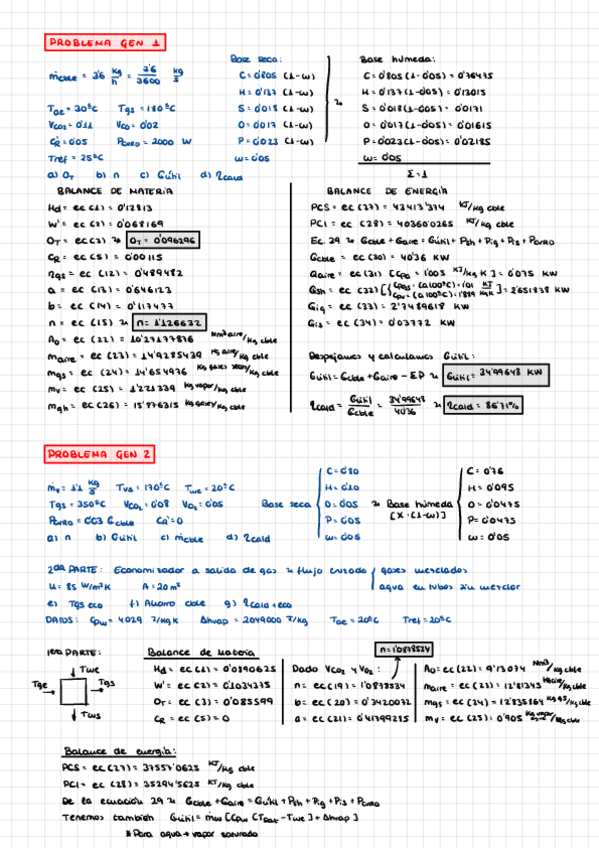 PROBLEMA GEN 1
ṁcble = 3'6 kg/h = 3'6/3600 kg/s
Tae = 30ºC Tgs = 180ºC
VCO2 = 0'11 VCO = 0'02
CR = 0'05 Potro = 2000 W
Tref = 25ºC
a) OT b) n c) Gútil d) ηcald
Base seca:
C = 0'805 (1-w)
H = 0'137 (1-w)
S = 0'018 (1-w)
O = 0'017 (1-w)
P = 0'023 (1-w)
w = 0'05
Base húmeda:
C = 0'805 (1-0'05) = 0'76475
H = 0'137 (1-0'05) = 0'13015
S = 0'018 (1-0'05) = 0'0171
O = 0'017 (1-0'05) = 0'01615
P = 0'023 (1-0'05) = 0'02185
w = 0'05
Σ = 1
BALANCE DE MATERIA
Hd = ec (1) = 0'12813
W' = ec (2) = 0'068169
OT = ec (3) → OT = 0'096296
CR = ec (5) = 0'00115
ngs = ec (12) = 0'489482
a = ec (13) = 0'646123
b = ec (14) = 0'117477
n = ec (15) → n = 1'126632
A0 = ec (22) = 10'27177876 Nm3 aire/kg cble
maire = ec (23) = 14'9285439 kg aire/kg cble
mgs = ec (24) = 14'654976 kg gases secos/kg cble
mv = ec (25) = 1'221339 kg vapor/kg cble
mgh = ec (26) = 15'876315 kg gases/kg cble
BALANCE DE ENERGIA
PCS = ec (27) = 43413'374 KJ/kg cble
PCI = ec (28) = 40360'0265 KJ/kg cble
Ec. 29 → Gcble + Gaire = Gútil + Pph + Pig + Pis + Potro
Gcble = ec (30) = 40'36 KW
Qaire = ec (31) [Cpa = 1'005 KJ/kg K] = 0'075 KW
Qsh = ec (32) [Cpgs = (a 100ºC) = 1'01 Cpv = (a 100ºC) = 1'889 KJ/kg K] = 2'651838 KW
Gig = ec (33) = 2'7489618 KW
Gis = ec (34) = 0'03772 KW
Despejamos y calculamos Gútil:
Gútil = Gcble + Gaire - ΣP → Gútil = 34'99643 KW
ηcald = Gútil/Gcble = 34'99643/40'36 → ηcald = 86'71%
PROBLEMA GEN 2
ṁv = 1'1 kg/s Tvs = 170ºC Twe = 20ºC
Tgs = 350ºC VCO2 = 0'08 VO2 = 0'05
Potro = 0'03 Gcble CR = 0
a) n b) Gútil c) ṁcble d) ηcald
Base seca
C = 0'80
H = 0'10
O = 0'05
P = 0'05
w = 0'05
→ Base húmeda
[X · (1-w)]
C = 0'76
H = 0'095
O = 0'0475
P = 0'0475
w = 0'05
2da PARTE: Economizador a salida de gas → flujo cruzado
gases mezclados
agua en tubos sin mezclar
U = 85 W/m2K A = 20 m2
e) Tgs eco f) Ahorro cble g) ηcald+eco
DATOS: Cpw = 4029 J/kg K Δhvap = 2049000 J/kg Tae = 20ºC Tref = 20ºC
1era PARTE:
Twe
Tge
Tgs
Tws
Balance de materia
Hd = ec (1) = 0'0890625
W' = ec (2) = 0'1034375
OT = ec (3) = 0'085599
CR = ec (5) = 0
n = 1'0878534
Dado VCO2 y VO2:
n = ec (19) = 1'0878534
b = ec (20) = 0'3420072
a = ec (21) = 0'41799215
A0 = ec (22) = 9'13074 Nm3/kg cble
maire = ec (23) = 12'81345 kg aire/kg cble
mgs = ec (24) = 12'835164 kg gs/kg cble
mv = ec (25) = 0'905 kg vapor/kg cble
Balance de energía:
PCS = ec (27) = 37557'0625 KJ/kg cble
PCI = ec (28) = 35294'5625 KJ/kg cble
De la ecuación 29 → Gcble + Gaire = Gútil + Pph + Pig + Pis + Potro
Tenemos también Gútil = ṁw [Cpw (Tsat - Twe) + Δhvap]
* Para agua → vapor saturado